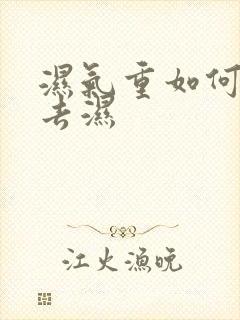 濕氣重如何
去濕
江火漁晚